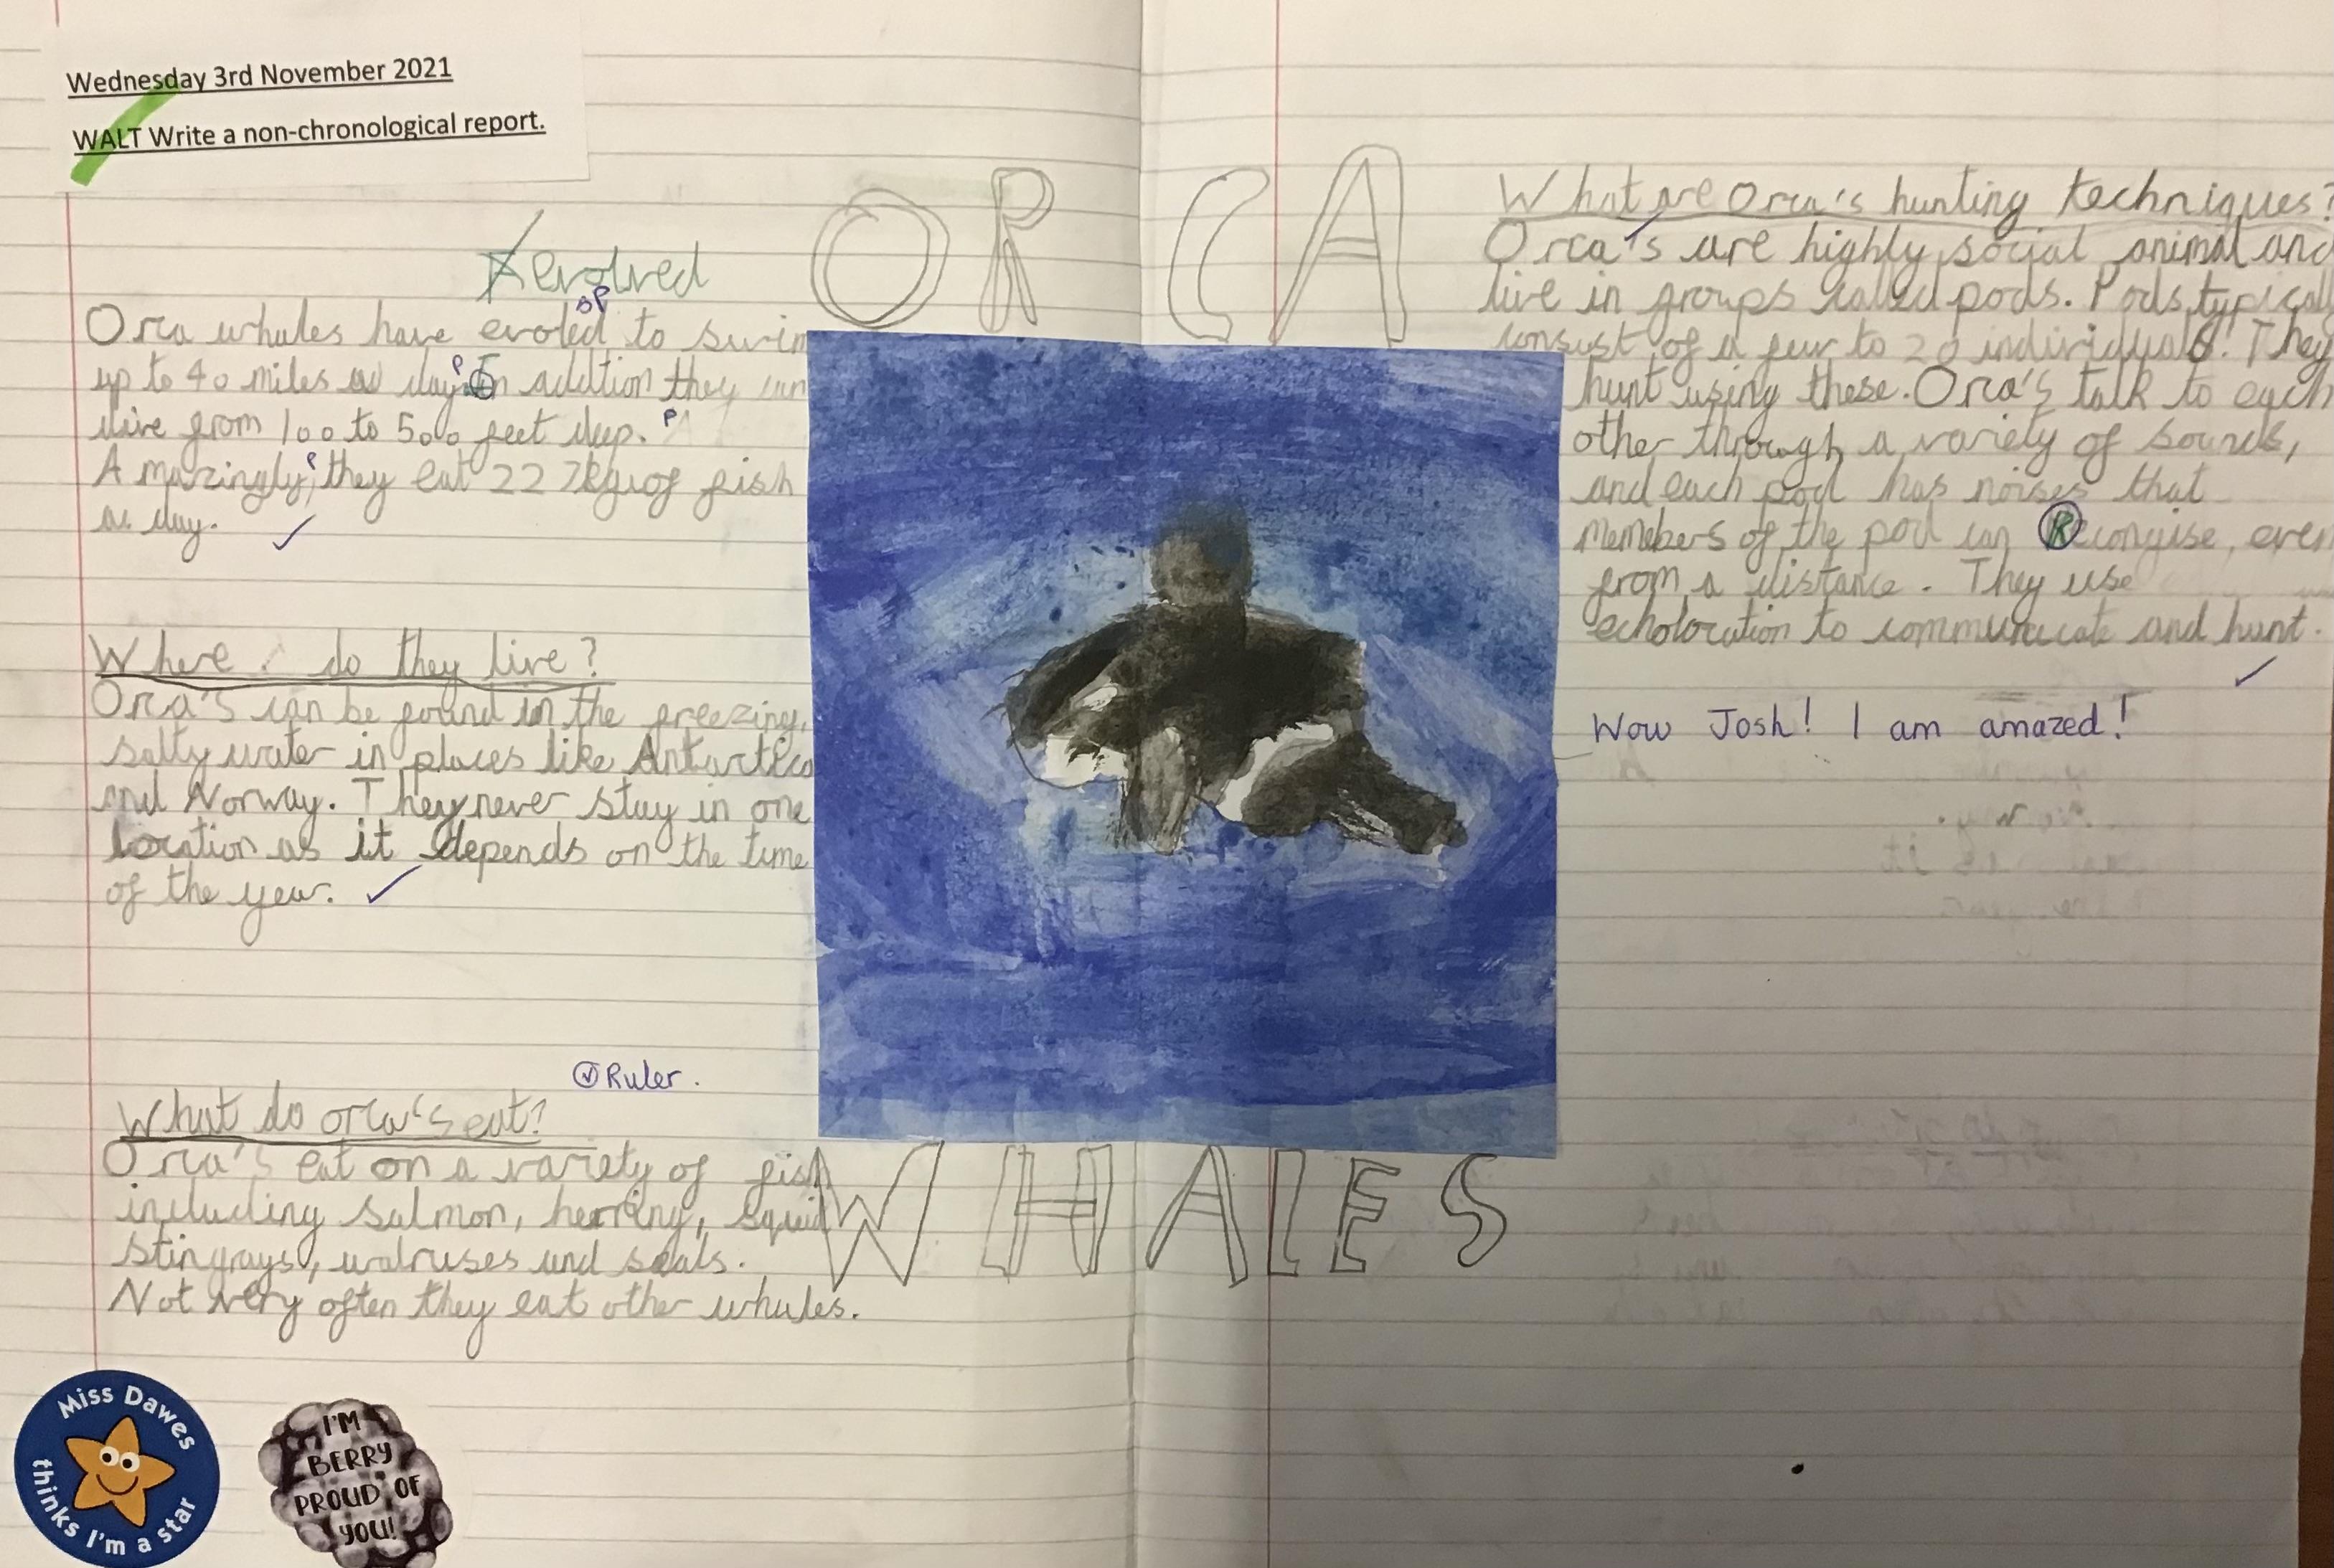 Wednesday 3rd November 2021
WALT Write a non-chronological report.
ORCA
evolved
sp
Orca whales have evoled to swim
up to 40 miles a day. In addtion they can
dive from 100 to 500 feet deep.
Amazingly, they eat 227kg of fish
a day.
Where do they live?
Orca's can be found in the freezing,
salty water in places like Antartica
and Norway. They never stay in one
location as it depends on the time
of the year.
Ruler.
What do orca's eat?
Orca's eat on a variety of fish
including salmon, herring, squid
stingrays, walruses and seals.
Not very often they eat other whales.
WHALES
What are Orca's hunting techniques?
Orca's are highly social animal and
live in groups called pods. Pods typicall
consust of a few to 20 individuals. They
hunt using these. Orca's talk to each
other through a variety of sounds,
and each pod has noises that
memebers of the pod can Recongise, even
from a distance. They use
echolocation to communicate and hunt.
Wow Josh! I am amazed!
Miss Dawes
thinks I'm a star
I'M
BERRY
PROUD OF
YOU!